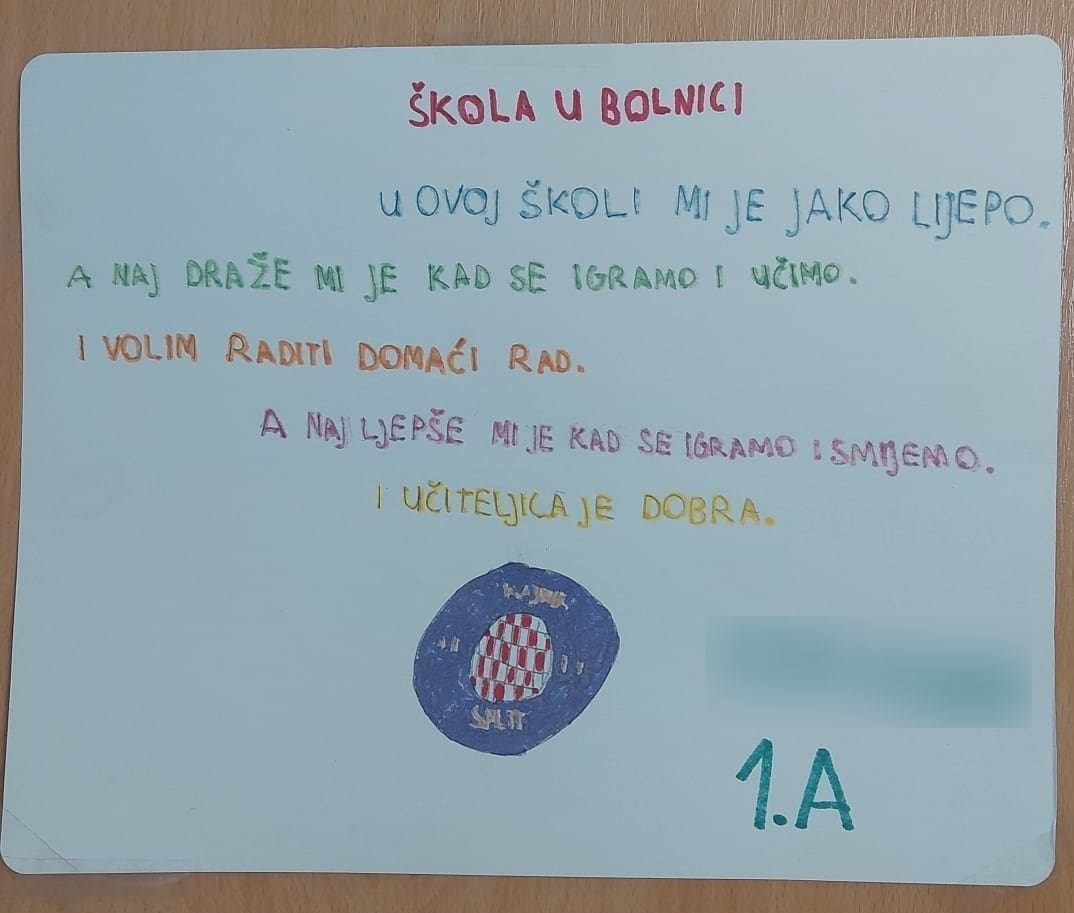 ŠKOLA U BOLNICI
U OVOJ ŠKOLI MI JE JAKO LIJEPO.
A NAJ DRAŽE MI JE KAD SE IGRAMO I UČIMO.
I VOLIM RADITI DOMAĆI RAD.
A NAJ LJEPŠE MI JE KAD SE IGRAMO I SMIJEMO.
I UČITELJICA JE DOBRA.
HAJDUK
SPLIT
1.A